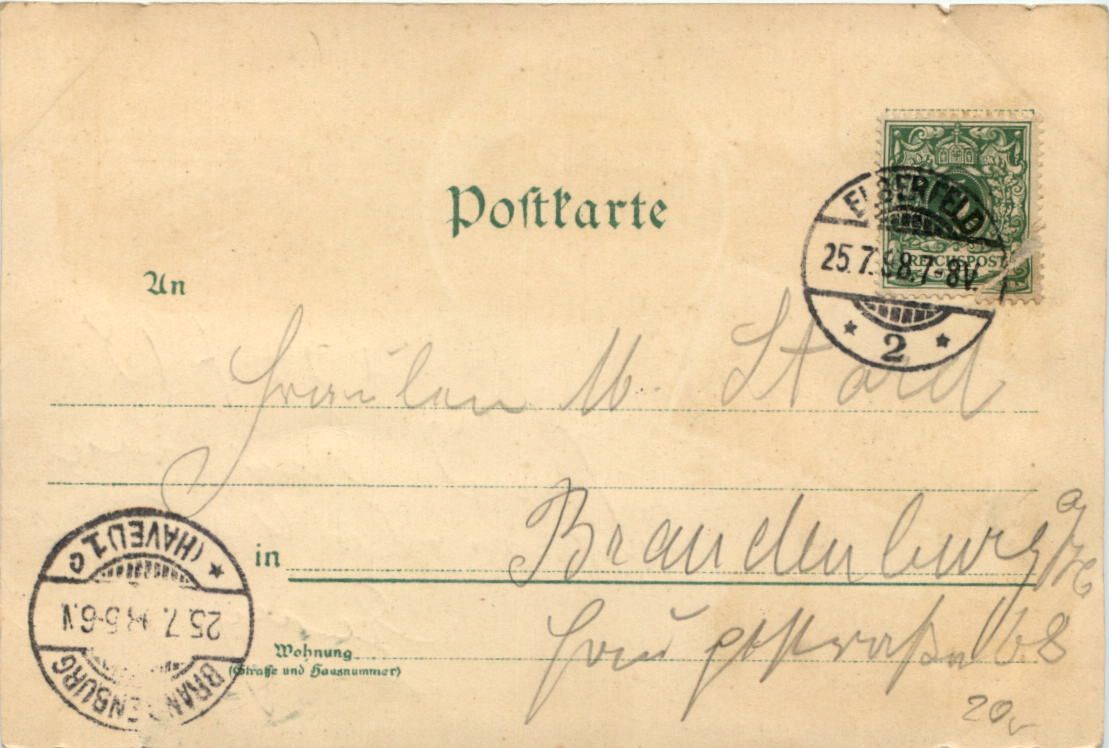 Postkarte
ELBERFELD
25.7.98.7-8V.
* 2 *
REICHSPOST
An
Fräulen M. Stard
in Brandenburg a/H
Hauptstraße 68
Wohnung
(Straße und Hausnummer)
BRANDENBURG
25.7. 5-6.N
* (HAVEL) 1 c
20,-